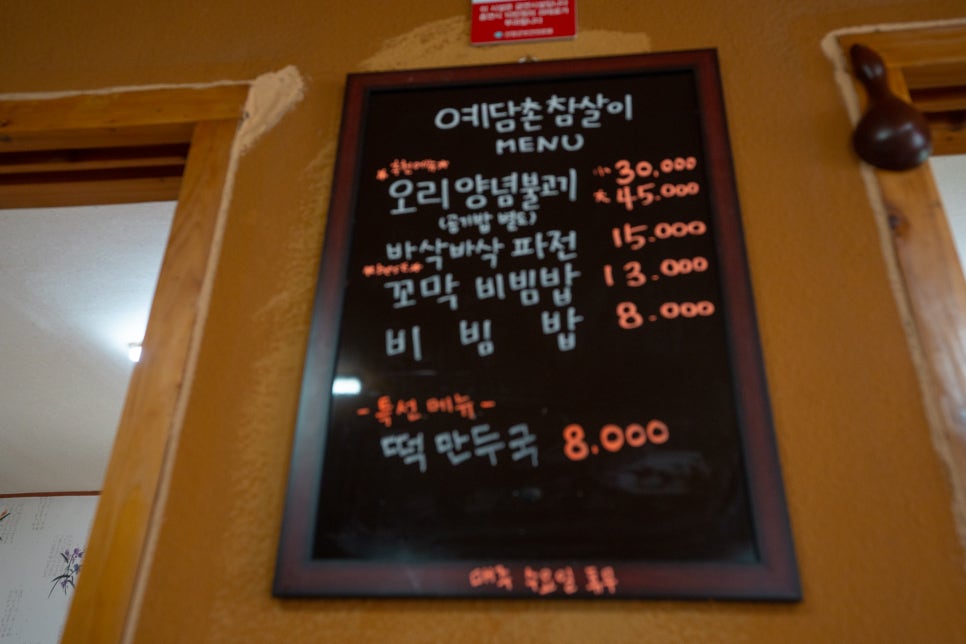 예담촌참살이
MENU
오리양념불고기 小 30,000
大 45.000
(공기밥 별도)
바삭바삭 파전 15.000
*Best*
꼬막 비빔밥 13.000
비빔밥 8.000
-특선 메뉴-
떡만두국 8.000
매주